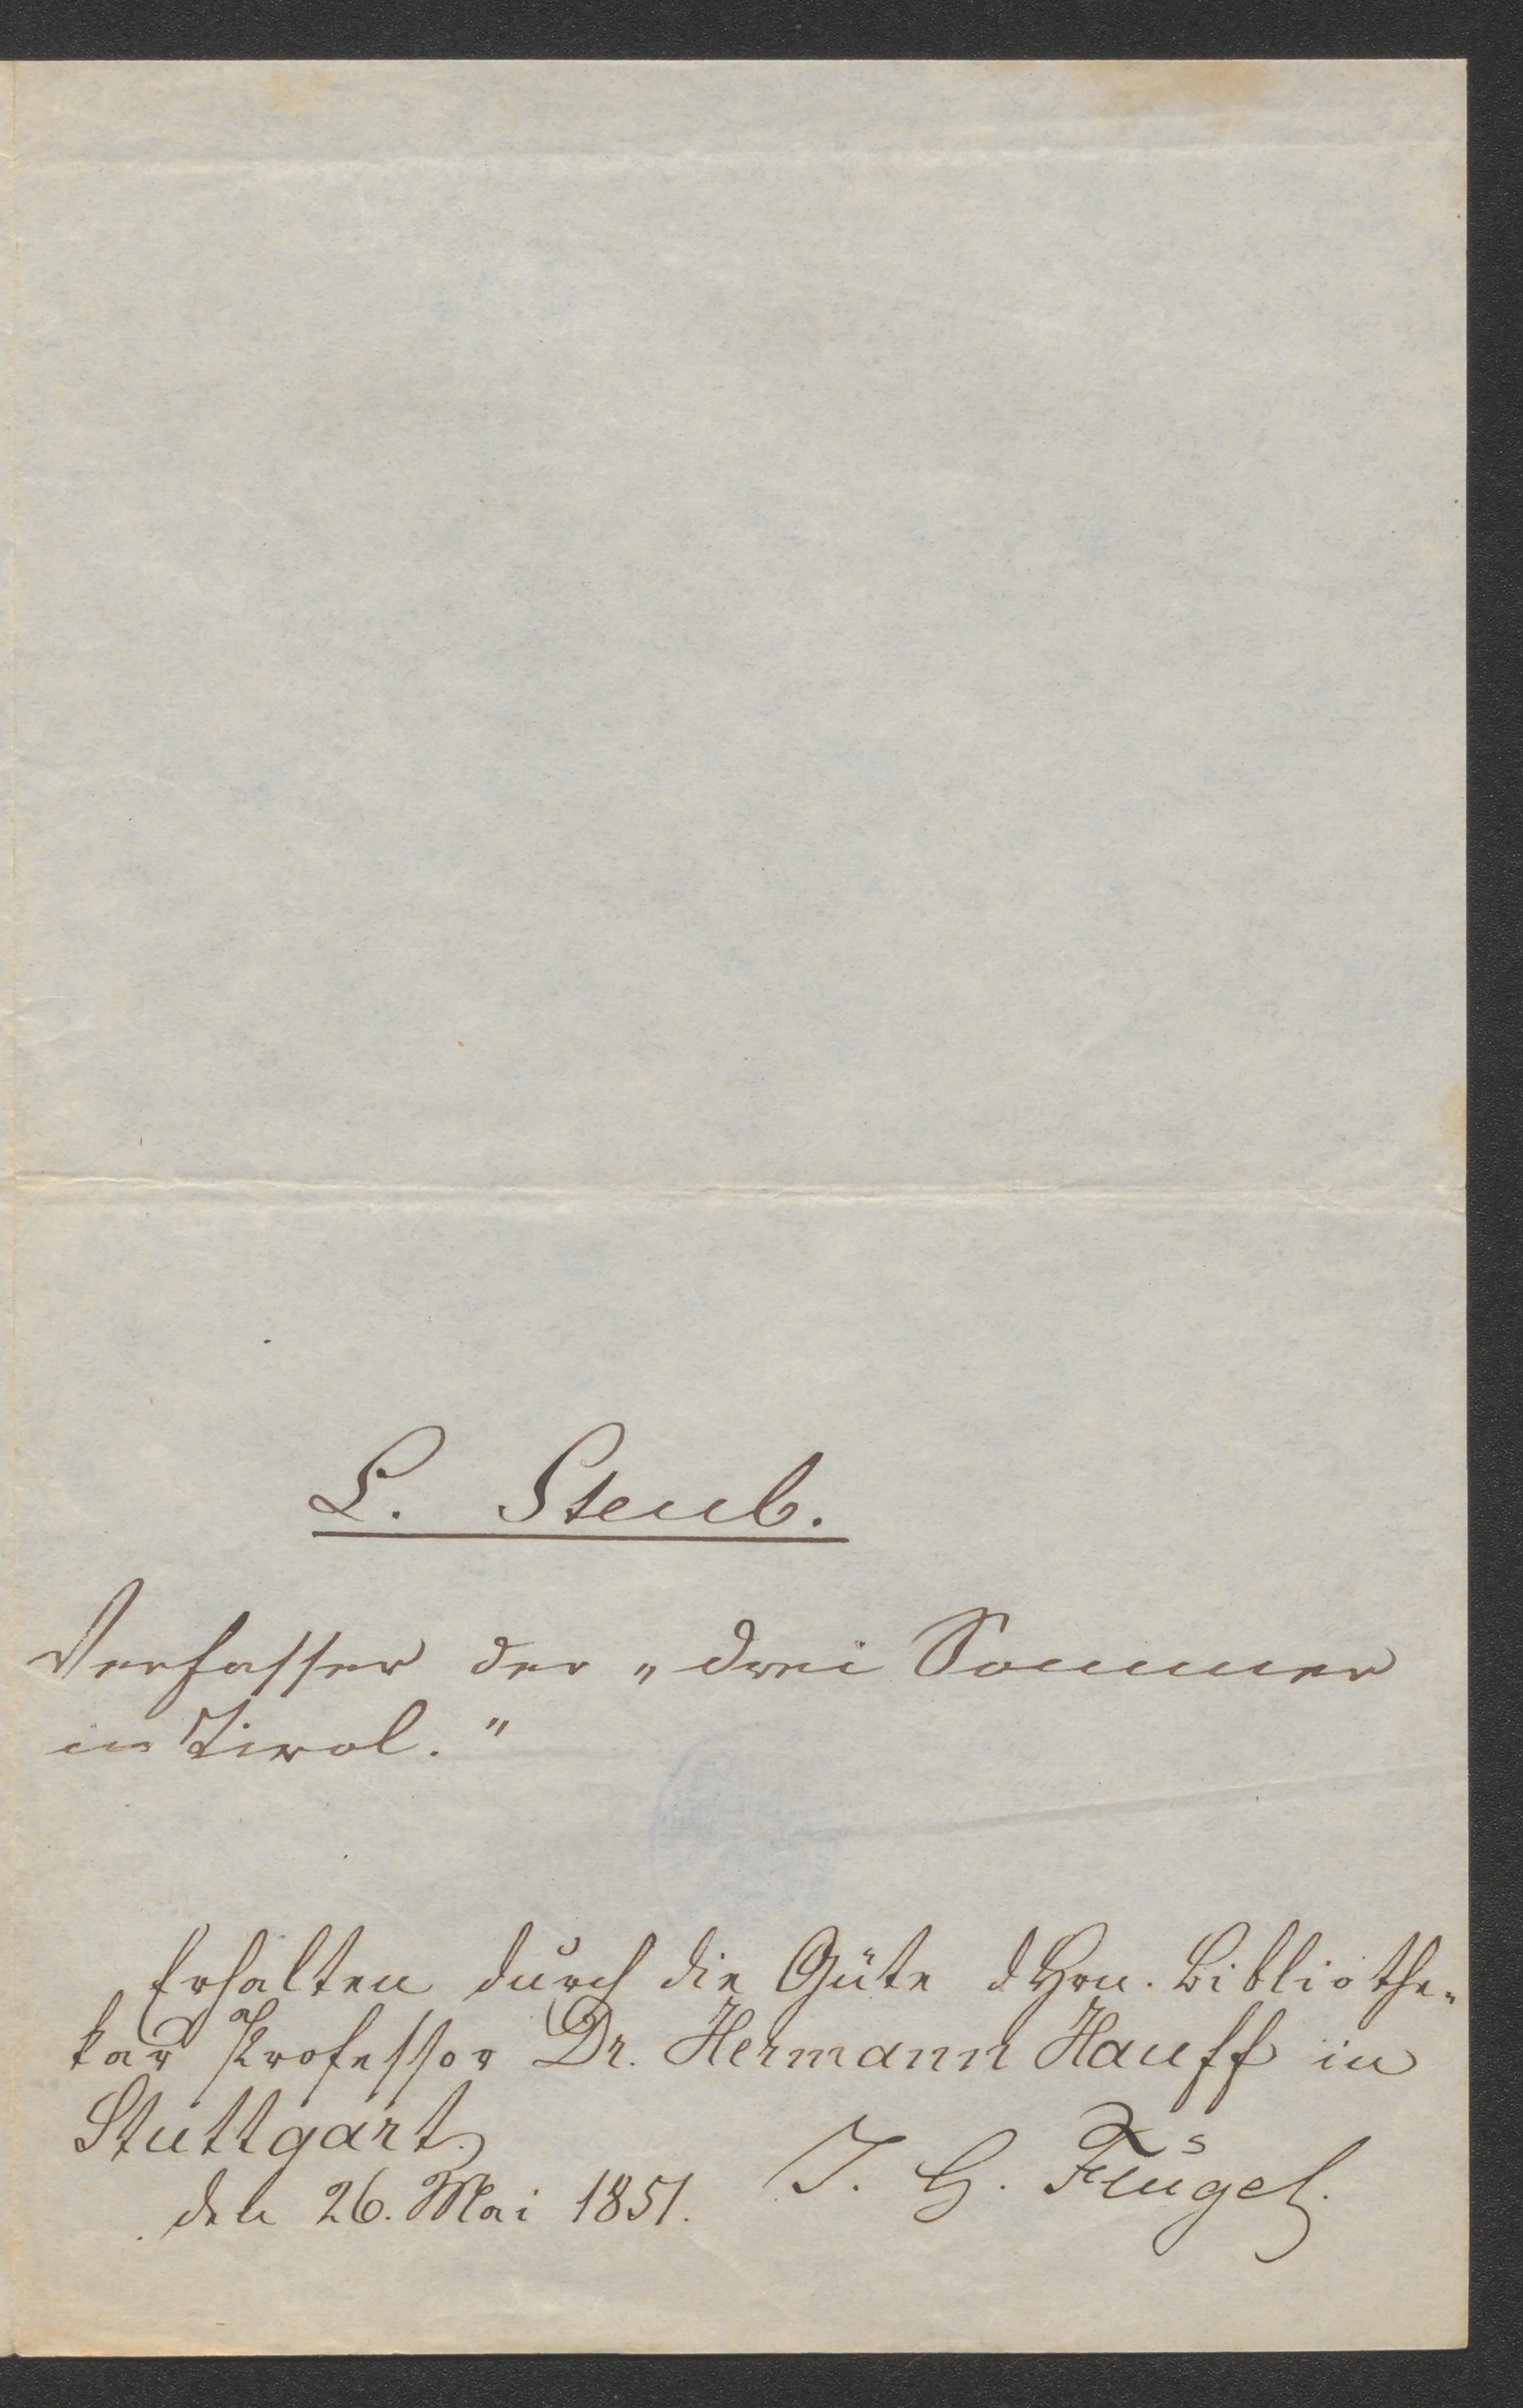 L. Steub.
Verfasser der „drei Sommer
in Tirol."
Erhalten durch die Güte d Hrn. Bibliothe-
kar Professor Dr. Hermann Hauff in
Stuttgart.
den 26. Mai 1851.
J. G. Flügel.